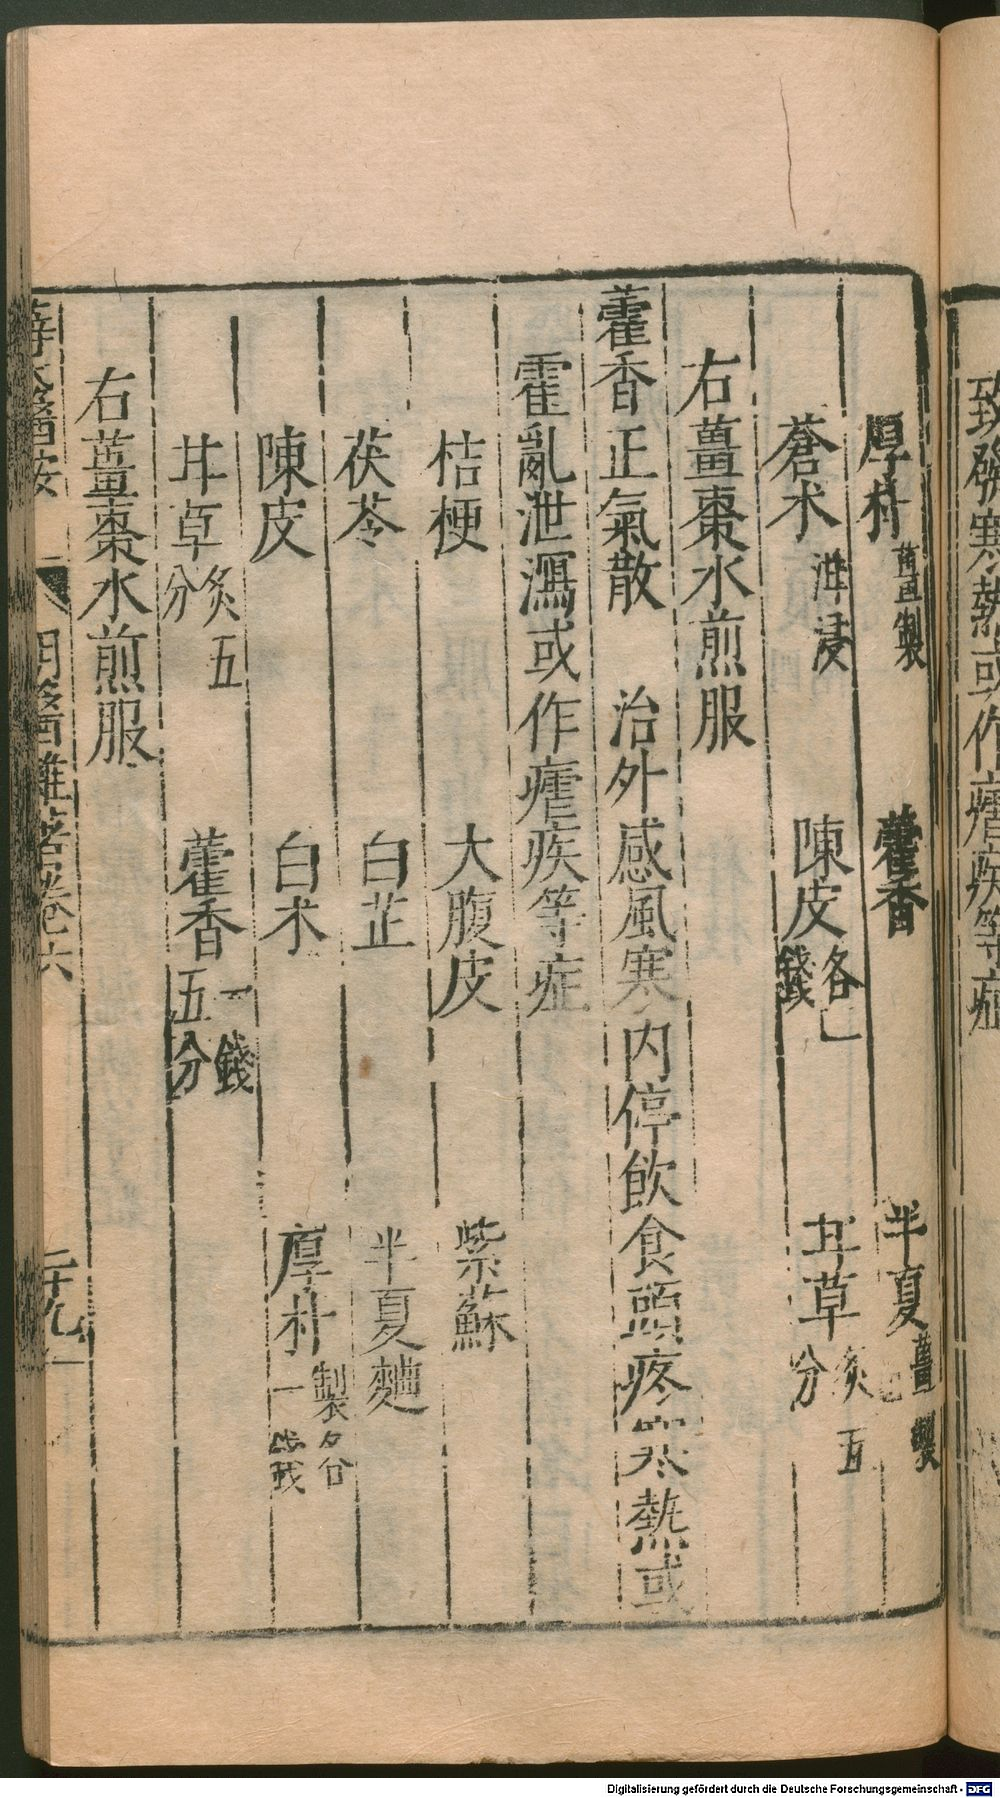 致發寒熱或作瘧疾等症
厚朴薑製　藿香　半夏薑製
蒼朮泔浸　陳皮各一錢　甘草炙五分
右薑棗水煎服
藿香正氣散　治外感風寒內停飲食頭疼寒熱或
霍亂泄瀉或作瘧疾等症
桔梗　大腹皮　紫蘇
茯苓　白芷　半夏麯
陳皮　白朮　厚朴製各一錢
甘草炙五分　藿香一錢五分
右薑棗水煎服
薛氏醫按　明醫雜著卷六　二十九
Digitalisierung gefördert durch die Deutsche Forschungsgemeinschaft - DFG